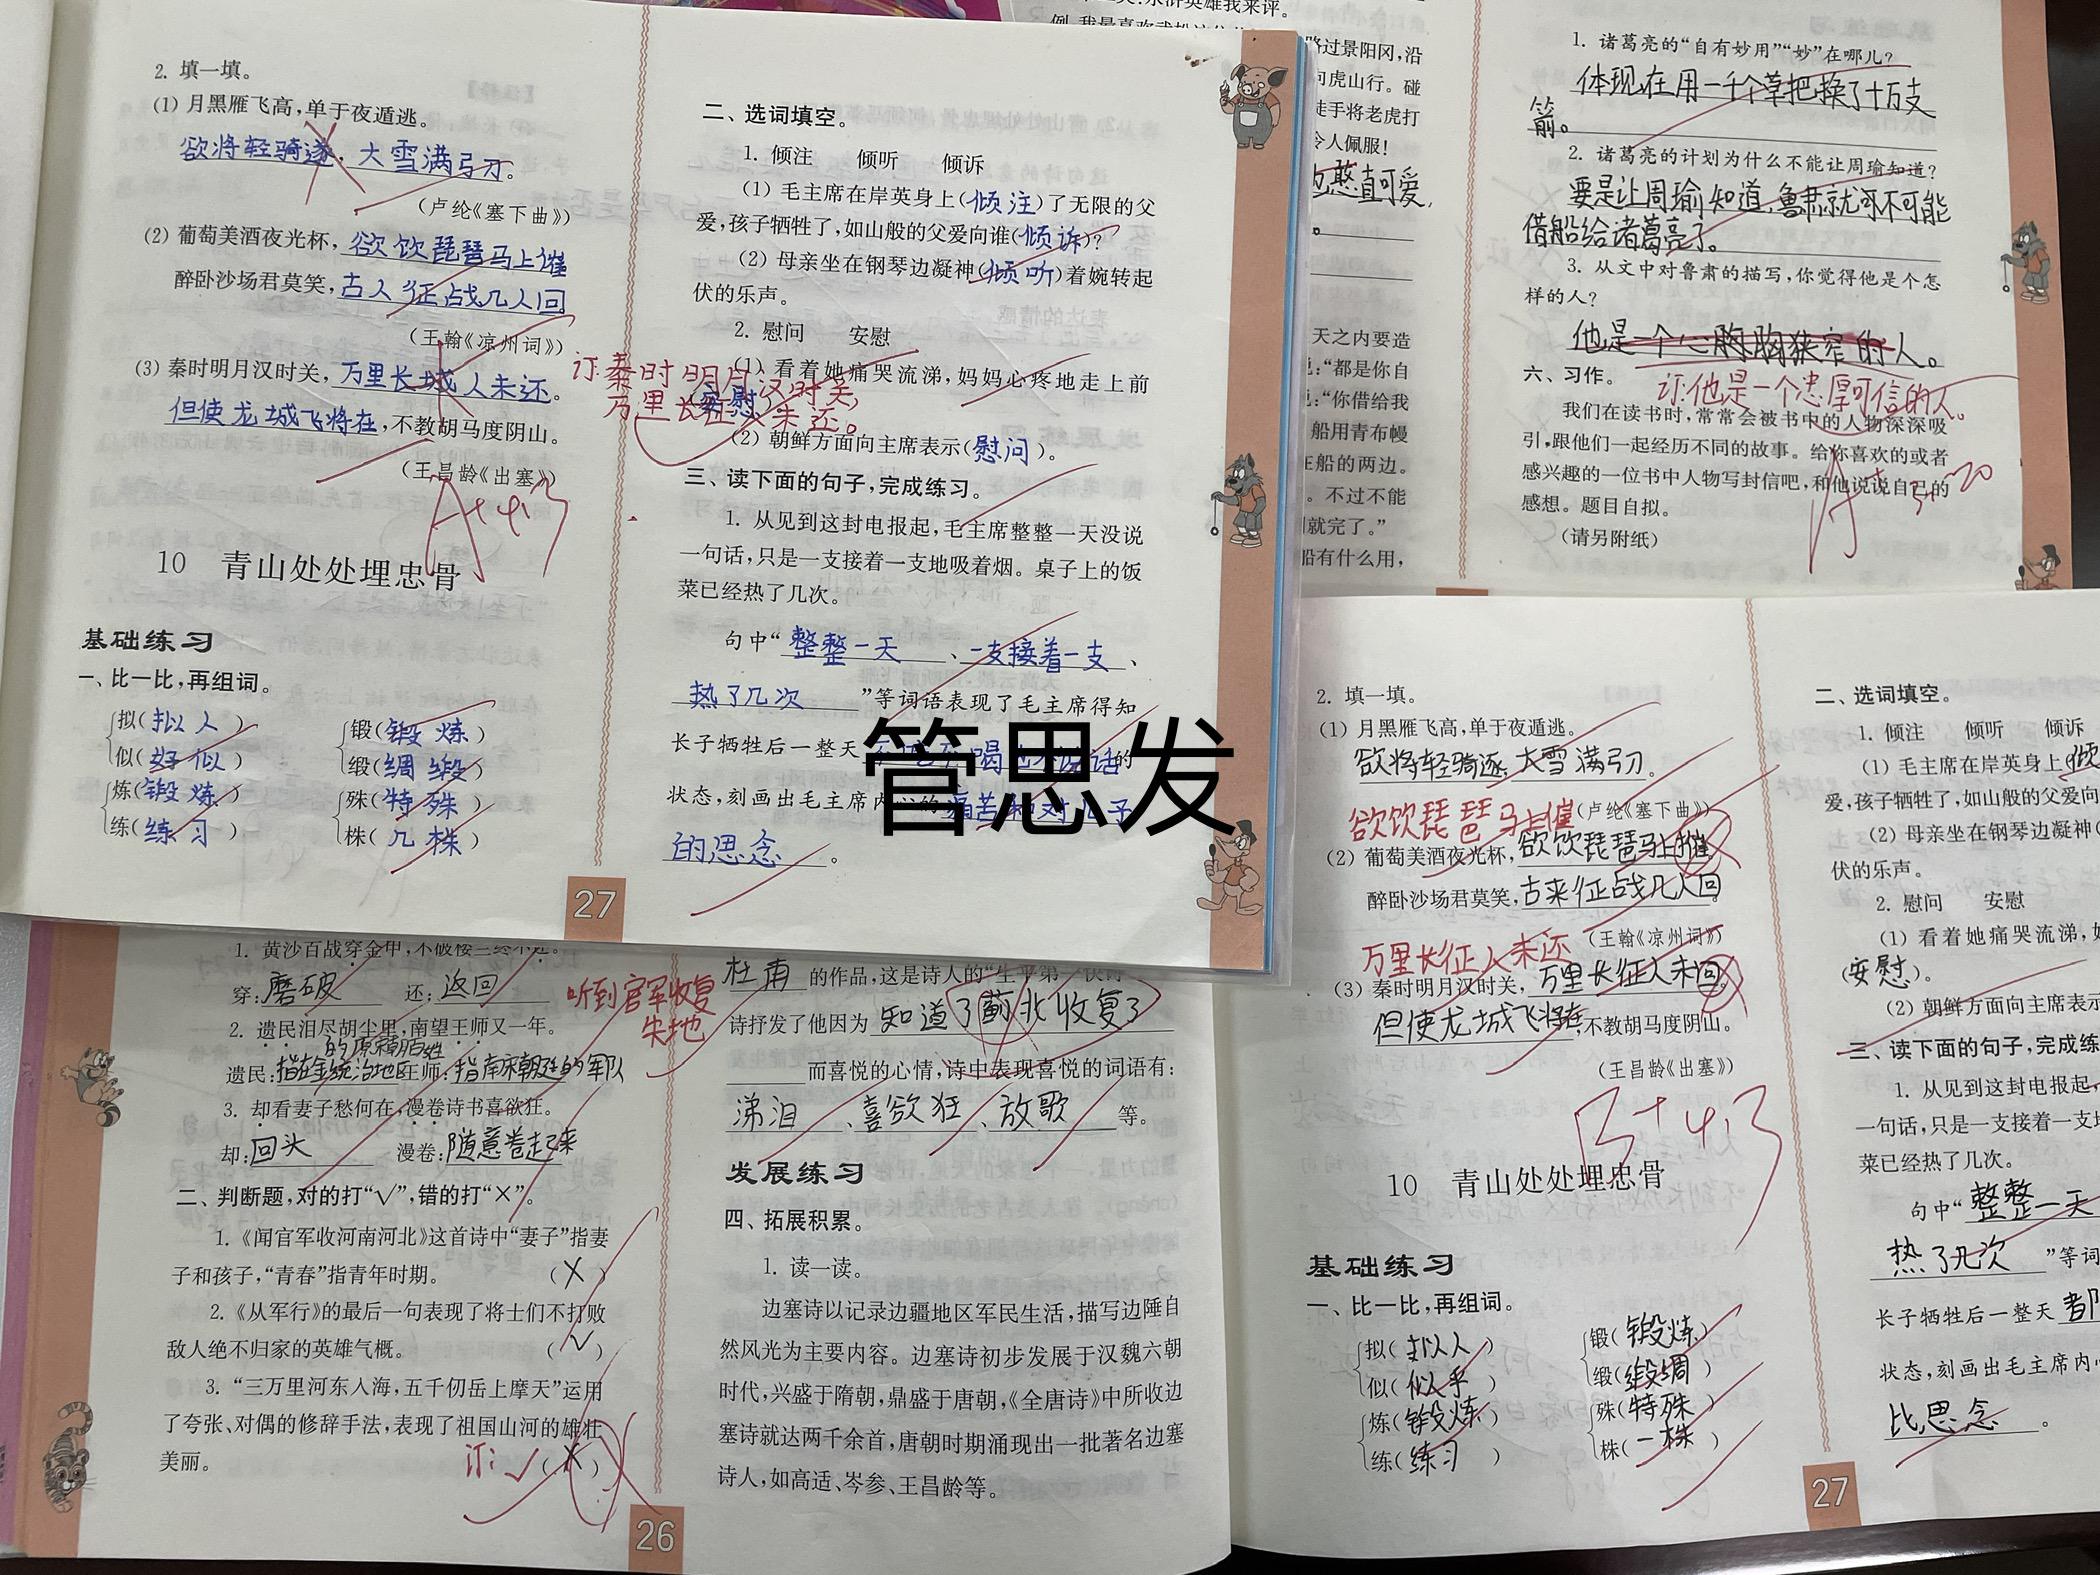 2. 填一填。
(1) 月黑雁飞高,单于夜遁逃。
欲将轻骑逐,大雪满弓刀。
(卢纶《塞下曲》)
(2) 葡萄美酒夜光杯,欲饮琵琶马上催
醉卧沙场君莫笑,古人征战几人回
(王翰《凉州词》)
(3) 秦时明月汉时关,万里长城人未还。
但使龙城飞将在,不教胡马度阴山。
(王昌龄《出塞》)
A+ 4.13
10 青山处处埋忠骨
基础练习
一、比一比,再组词。
拟(拟人) 锻(锻炼)
似(好似) 缎(绸缎)
炼(锻炼) 殊(特殊)
练(练习) 株(几株)
27
二、选词填空。
1. 倾注 倾听 倾诉
(1) 毛主席在岸英身上(倾注)了无限的父
爱,孩子牺牲了,如山般的父爱向谁(倾诉)?
(2) 母亲坐在钢琴边凝神(倾听)着婉转起
伏的乐声。
2. 慰问 安慰
(1) 看着她痛哭流涕,妈妈心疼地走上前
(安慰)
订:秦时明月汉时关,
万里长征人未还。
(2) 朝鲜方面向主席表示(慰问)。
三、读下面的句子,完成练习。
1. 从见到这封电报起,毛主席整整一天没说
一句话,只是一支接着一支地吸着烟。桌子上的饭
菜已经热了几次。
句中“整整一天、一支接着一支、
热了几次”等词语表现了毛主席得知
长子牺牲后一整天 喝 话的
状态,刻画出毛主席内心的痛苦和对儿子
的思念。
管思发
例
路过景阳冈,沿
向虎山行。碰
徒手将老虎打
令人佩服!
憨直可爱,
天之内要造
说:“都是你自
:“你借给我
船用青布幔
在船的两边。
。不过不能
就完了。”
船有什么用,
1. 诸葛亮的“自有妙用”“妙”在哪儿?
体现在用一千个草把换了十万支
箭。
2. 诸葛亮的计划为什么不能让周瑜知道?
要是让周瑜知道,鲁肃就可不可能
借船给诸葛亮了。
3. 从文中对鲁肃的描写,你觉得他是个怎
样的人?
他是一个心胸胸狭窄的人。
订:他是一个忠厚可信的人。
六、习作。
我们在读书时,常常会被书中的人物深深吸
引,跟他们一起经历不同的故事。给你喜欢的或者
感兴趣的一位书中人物写封信吧,和他说说自己的
感想。题目自拟。
(请另附纸)
1. 黄沙百战穿金甲,不破楼兰终不还。
穿:磨破 还:返回
2. 遗民泪尽胡尘里,南望王师又一年。
的原宋朝百姓
遗民:指在金统治地区 王师:指南宋朝廷的军队
3. 却看妻子愁何在,漫卷诗书喜欲狂。
却:回头 漫卷:随意卷起来
二、判断题,对的打“√”,错的打“×”。
1.《闻官军收河南河北》这首诗中“妻子”指妻
子和孩子,“青春”指青年时期。 (×)
2.《从军行》的最后一句表现了将士们不打败
敌人绝不归家的英雄气概。 (√)
3. “三万里河东入海,五千仞岳上摩天”运用
了夸张、对偶的修辞手法,表现了祖国山河的雄壮
美丽。 订:√ (×)
26
杜甫的作品,这是诗人的“生平第一快诗”
听到官军收复
失地
诗抒发了他因为知道了蓟北收复了
而喜悦的心情,诗中表现喜悦的词语有:
涕泪、喜欲狂、放歌等。
发展练习
四、拓展积累。
1. 读一读。
边塞诗以记录边疆地区军民生活,描写边陲自
然风光为主要内容。边塞诗初步发展于汉魏六朝
时代,兴盛于隋朝,鼎盛于唐朝,《全唐诗》中所收边
塞诗就达两千余首,唐朝时期涌现出一批著名边塞
诗人,如高适、岑参、王昌龄等。
2. 填一填。
(1) 月黑雁飞高,单于夜遁逃。
欲将轻骑逐,大雪满弓刀。
(卢纶《塞下曲》)
欲饮琵琶马上催
(2) 葡萄美酒夜光杯,欲饮琵琶马上摧
醉卧沙场君莫笑,古来征战几人回
(王翰《凉州词》)
万里长征人未还
(3) 秦时明月汉时关,万里长征人未回。
但使龙城飞将在,不教胡马度阴山。
(王昌龄《出塞》)
B+ 4.13
10 青山处处埋忠骨
基础练习
一、比一比,再组词。
拟(拟人) 锻(锻炼)
似(似乎) 缎(缎绸)
炼(锻炼) 殊(特殊)
练(练习) 株(一株)
27
二、选词填空。
1. 倾注 倾听 倾诉
(1) 毛主席在岸英身上(倾
爱,孩子牺牲了,如山般的父爱向
(2) 母亲坐在钢琴边凝神(
伏的乐声。
2. 慰问 安慰
(1) 看着她痛哭流涕,妈
(安慰)。
(2) 朝鲜方面向主席表示
三、读下面的句子,完成练
1. 从见到这封电报起,
一句话,只是一支接着一支地
菜已经热了几次。
句中“整整一天
热了几次”等词
长子牺牲后一整天都
状态,刻画出毛主席内心
比思念。